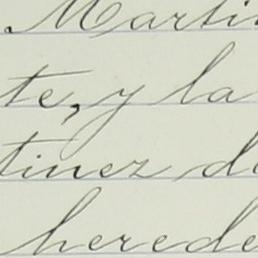 Martin
te, y la
tinez de
herede